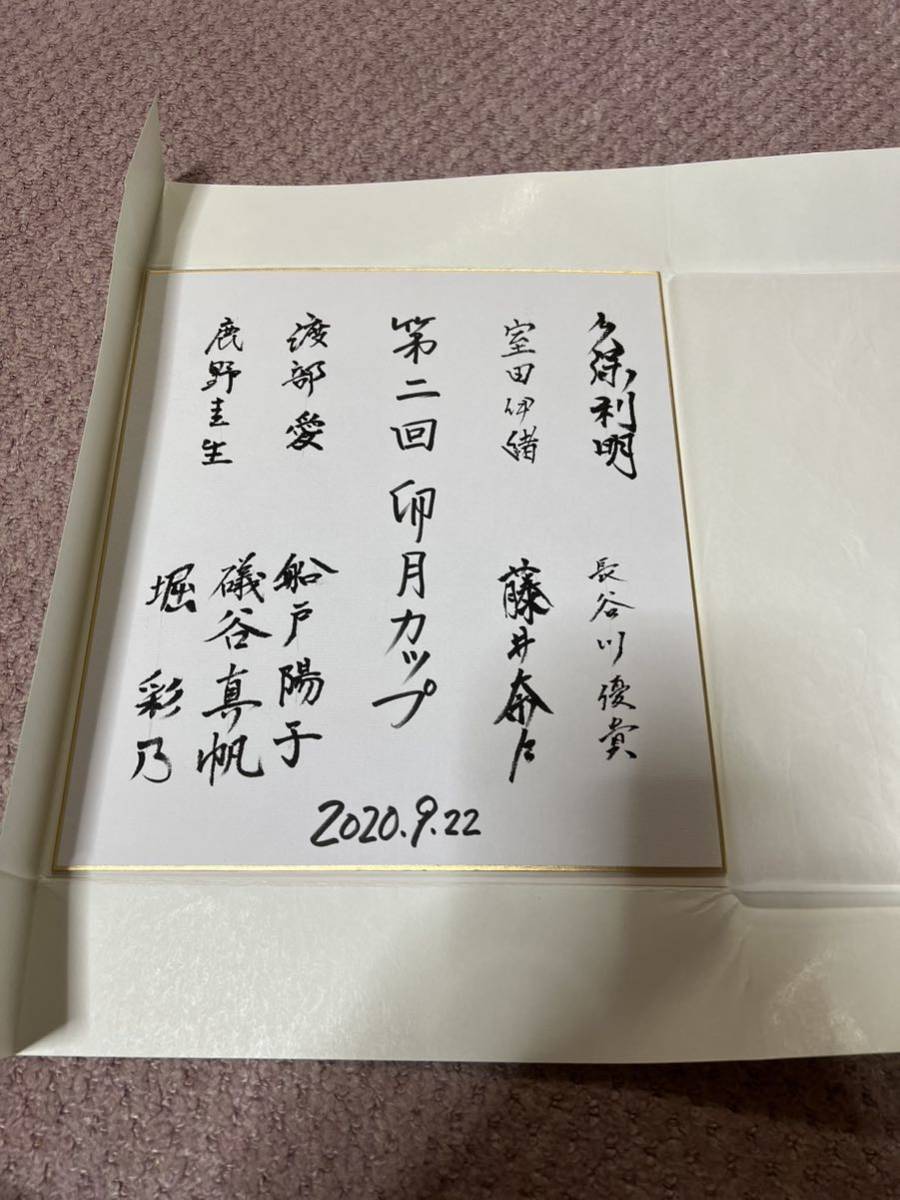 久保利明
長谷川優貴
室田伊緒
藤井奈々
第二回 卯月カップ
渡部愛
船戸陽子
鹿野圭生
礒谷真帆
堀 彩乃
2020.9.22